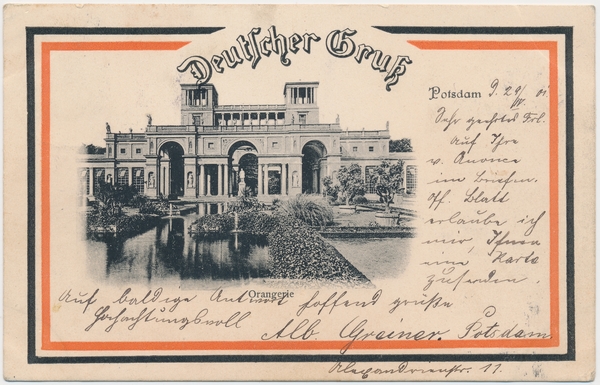 Deutscher Gruß
Potsdam 9. 29/IV. 01
Sehr geehrtes Frl.
Auf Ihre
w. Anonce
im Briefm.
Off. Blatt
erlaube ich
mir, Ihnen
eine Karte
zusenden.
Orangerie
Auf baldige Antwort hoffend grüße
Hochachtungsvoll
Alb. Greiner. Potsdam
Alexandrienstr. 11.